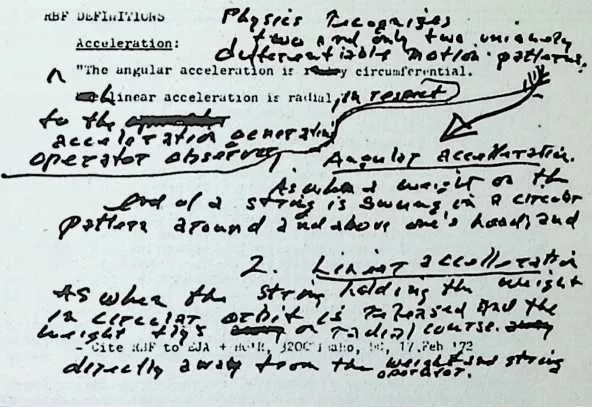 RBF DEFINITIONS
Physics Recognizes
two and only two uniquely
differentiable motion patterns.
Acceleration:
"The angular acceleration is circumferential.
linear acceleration is radial, in respect
to the
acceleration generating
operator observer
Angular acceleration.
As when a weight on the
end of a string is swung in a circular
pattern around and above one's head; and
2. Linear acceleration
As when the string holding the weight
in circular orbit is released and the
weight flys on radial course.
- Cite RBF to EJA + 3200 Idaho, DC, 17 Feb '72
directly away from the weight and string
operator.